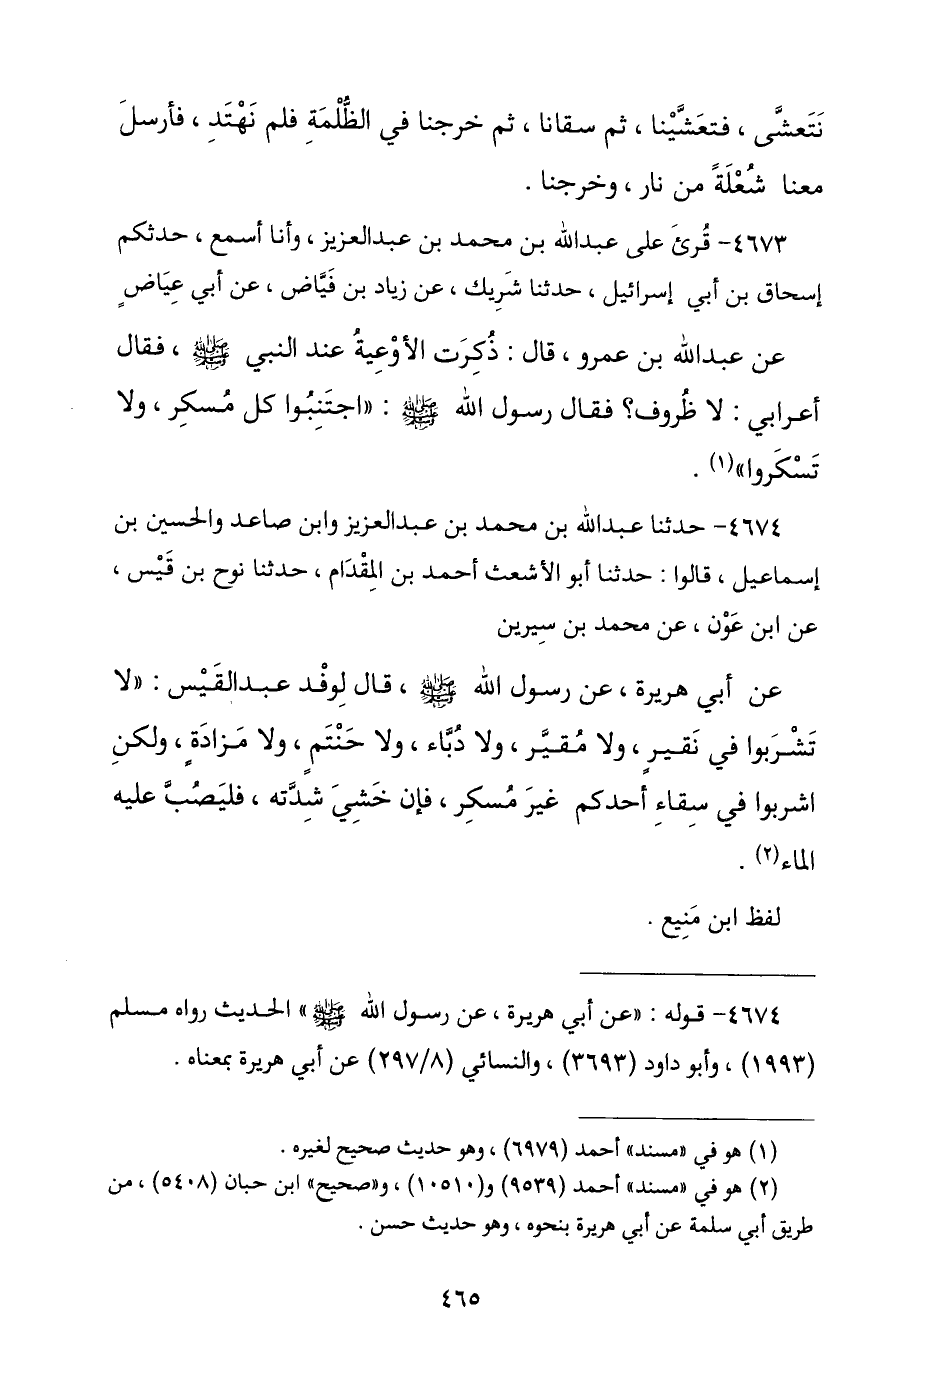 نَتَعشَّى ، فتعَشَّيْنا ، ثم سقانا ، ثم خرجنا في الظُّلْمَةِ فلم نَهْتَدِ ، فأرسلَ
معنا شُعْلَةً من نار ، وخرجنا .
٤٦٧٣- قُرئَ على عبدالله بن محمد بن عبدالعزيز ، وأنا أسمع ، حدثكم
إسحاق بن أبي إسرائيل ، حدثنا شَرِيك ، عن زياد بن فَيَّاض ، عن أبي عِيَاضٍ
عن عبدالله بن عمرو ، قال : ذُكِرَت الأوْعِيةُ عند النبي ﷺ ، فقال
أعرابي : لا ظُروف؟ فقال رسول الله ﷺ : «اجتَنِبُوا كل مُسكِر ، ولا
تَسْكَروا»(١) .
٤٦٧٤- حدثنا عبدالله بن محمد بن عبدالعزيز وابن صاعد والحسين بن
إسماعيل ، قالوا : حدثنا أبو الأشعث أحمد بن المِقْدَام ، حدثنا نوح بن قَيْس ،
عن ابن عَوْن ، عن محمد بن سِيرين
عن أبي هريرة ، عن رسول الله ﷺ ، قال لِوفْد عبدالقَيْس : «لا
تَشْرَبوا في نَقيرٍ ، ولا مُقيَّر ، ولا دُبَّاء ، ولا حَنْتَمٍ ، ولا مَزادَةٍ ، ولكنِ
اشربوا في سِقاءِ أحدكم غيرَ مُسكِر ، فإن خَشِيَ شِدَّته ، فليَصُبَّ عليه
الماء(٢) .
لفظ ابن مَنِيع .
٤٦٧٤- قوله : «عن أبي هريرة ، عن رسول الله ﷺ» الحديث رواه مسلم
(١٩٩٣) ، وأبو داود (٣٦٩٣) ، والنسائي (٢٩٧/٨) عن أبي هريرة بمعناه .
(١) هو في «مسند» أحمد (٦٩٧٩) ، وهو حديث صحيح لغيره .
(٢) هو في «مسند» أحمد (٩٥٣٩) و(١٠٥١٠) ، و«صحيح» ابن حبان (٥٤٠٨) ، من
طريق أبي سلمة عن أبي هريرة بنحوه ، وهو حديث حسن .
٤٦٥